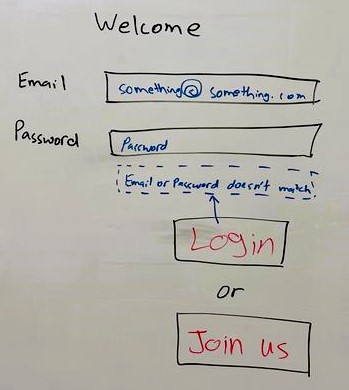 Welcome
Email something@something.com
Password Password
Email or Password doesn't match
Login
or
Join us